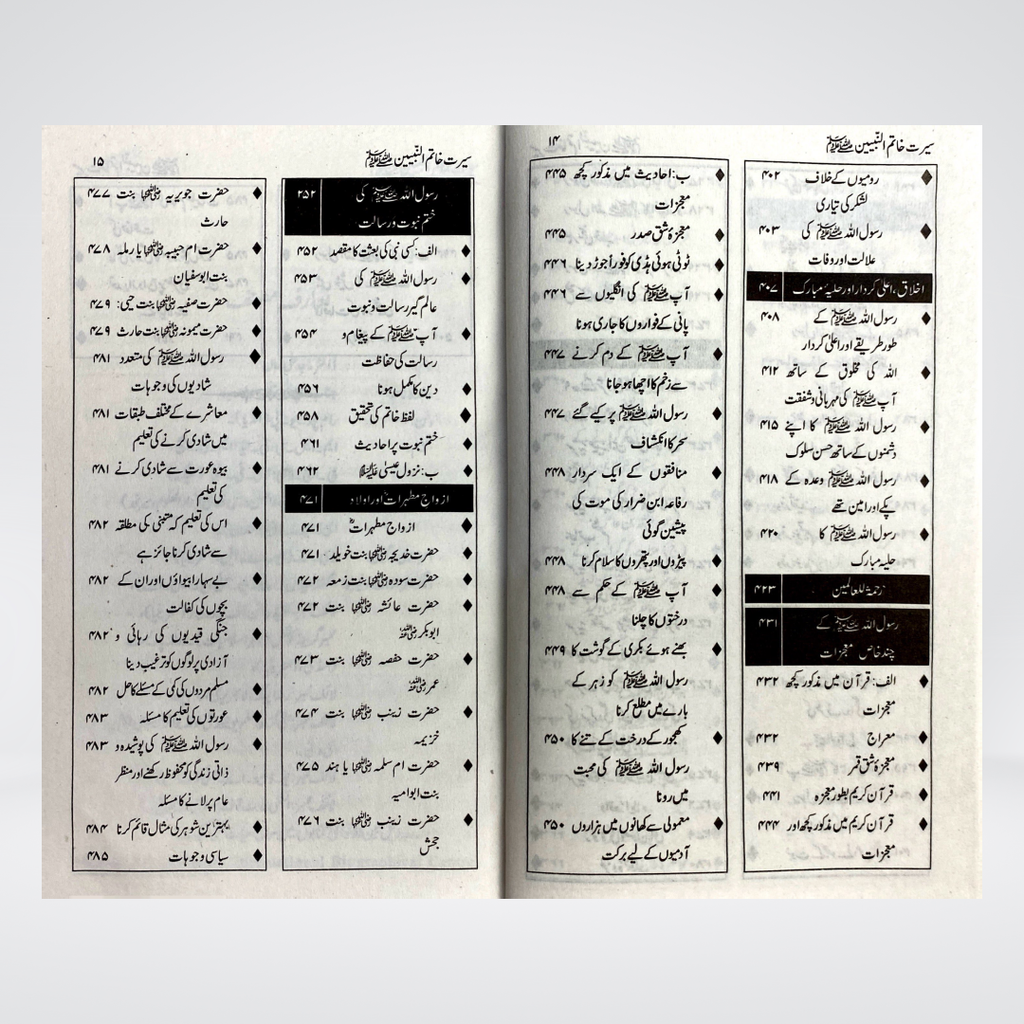 سیرت خاتم النّبیین ﷺ
۱۴
رومیوں کے خلاف ۴۰۲
لشکر کی تیاری
رسول اللہ ﷺ کی ۴۰۳
علالت اور وفات
اخلاق، اعلیٰ کردار اور حلیہ مبارک ۴۰۷
رسول اللہ ﷺ کے ۴۰۸
طور طریقے اور اعلیٰ کردار
اللہ کی مخلوق کے ساتھ ۴۱۲
آپ ﷺ کی مہربانی و شفقت
رسول اللہ ﷺ کا اپنے ۴۱۵
دشمنوں کے ساتھ حسن سلوک
رسول اللہ ﷺ وعدہ کے ۴۱۸
پکے اور امین تھے
رسول اللہ ﷺ کا ۴۲۰
حلیہ مبارک
رحمۃ للعالمین ۴۲۳
رسول اللہ ﷺ کے ۴۳۱
چند خاص معجزات
الف: قرآن میں مذکور کچھ ۴۳۲
معجزات
معراج ۴۳۲
معجزۂ شق قمر ۴۳۹
قرآن کریم بطور معجزہ ۴۴۱
قرآن کریم میں مذکور کچھ اور ۴۴۴
معجزات
ب: احادیث میں مذکور کچھ ۴۴۵
معجزات
معجزۂ شق صدر ۴۴۵
ٹوٹی ہوئی ہڈی کو فوراً جوڑ دینا ۴۴۶
آپ ﷺ کی انگلیوں سے ۴۴۶
پانی کے فواروں کا جاری ہونا
آپ ﷺ کے دم کرنے ۴۴۷
سے زخم کا اچھا ہو جانا
رسول اللہ ﷺ پر کیے گئے ۴۴۷
سحر کا انکشاف
منافقوں کے ایک سردار ۴۴۸
رفاعہ ابن ضرار کی موت کی
پیشین گوئی
پیڑوں اور پتھروں کا سلام کرنا ۴۴۸
آپ ﷺ کے حکم سے ۴۴۸
درختوں کا چلنا
بھنے ہوئے بکری کے گوشت کا ۴۴۹
رسول اللہ ﷺ کو زہر کے
بارے میں مطلع کرنا
کھجور کے درخت کے تنے کا ۴۵۰
رسول اللہ ﷺ کی محبت
میں رونا
معمولی سے کھانوں میں ہزاروں ۴۵۰
آدمیوں کے لیے برکت
سیرت خاتم النّبیین ﷺ
۱۵
رسول اللہ ﷺ کی ۴۵۲
ختم نبوت و رسالت
الف: کسی نبی کی بعثت کا مقصد ۴۵۲
رسول اللہ ﷺ کی ۴۵۳
عالم گیر رسالت و نبوت
آپ ﷺ کے پیغام و ۴۵۴
رسالت کی حفاظت
دین کا مکمل ہونا ۴۵۶
لفظ خاتم کی تحقیق ۴۵۸
ختم نبوت پر احادیث ۴۶۱
ب: نزول عیسیٰ علیہ السلام ۴۶۲
ازواج مطہراتؓ اور اولاد ۴۷۱
ازواج مطہراتؓ ۴۷۱
حضرت خدیجہ رضی اللہ عنہا بنت خویلد ۴۷۱
حضرت سودہ رضی اللہ عنہا بنت زمعہ ۴۷۲
حضرت عائشہ رضی اللہ عنہا بنت ۴۷۲
ابوبکر رضی اللہ عنہ
حضرت حفصہ رضی اللہ عنہا بنت ۴۷۳
عمر رضی اللہ عنہ
حضرت زینب رضی اللہ عنہا بنت ۴۷۴
خزیمہ
حضرت ام سلمہ رضی اللہ عنہا یا ہند ۴۷۵
بنت ابوامیہ
حضرت زینب رضی اللہ عنہا بنت ۴۷۶
جحش
حضرت جویریہ رضی اللہ عنہا بنت ۴۷۷
حارث
حضرت ام حبیبہ رضی اللہ عنہا یا رملہ ۴۷۸
بنت ابوسفیان
حضرت صفیہ رضی اللہ عنہا بنت حیی: ۴۷۹
حضرت میمونہ رضی اللہ عنہا بنت حارث ۴۷۹
رسول اللہ ﷺ کی متعدد ۴۸۱
شادیوں کی وجوہات
معاشرے کے مختلف طبقات ۴۸۱
میں شادی کرنے کی تعلیم
بیوہ عورت سے شادی کرنے ۴۸۱
کی تعلیم
اس کی تعلیم کہ متبنی کی مطلقہ ۴۸۲
سے شادی کرنا جائز ہے
بے سہارا بیواؤں اور ان کے ۴۸۲
بچوں کی کفالت
جنگی قیدیوں کی رہائی و ۴۸۲
آزادی پر لوگوں کو ترغیب دینا
مسلم مردوں کی کمی کے مسئلے کا حل ۴۸۲
عورتوں کی تعلیم کا مسئلہ ۴۸۳
رسول اللہ ﷺ کی پوشیدہ و ۴۸۳
ذاتی زندگی کو محفوظ رکھنے اور منظر
عام پر لانے کا مسئلہ
بہترین شوہر کی مثال قائم کرنا ۴۸۴
سیاسی وجوہات ۴۸۵